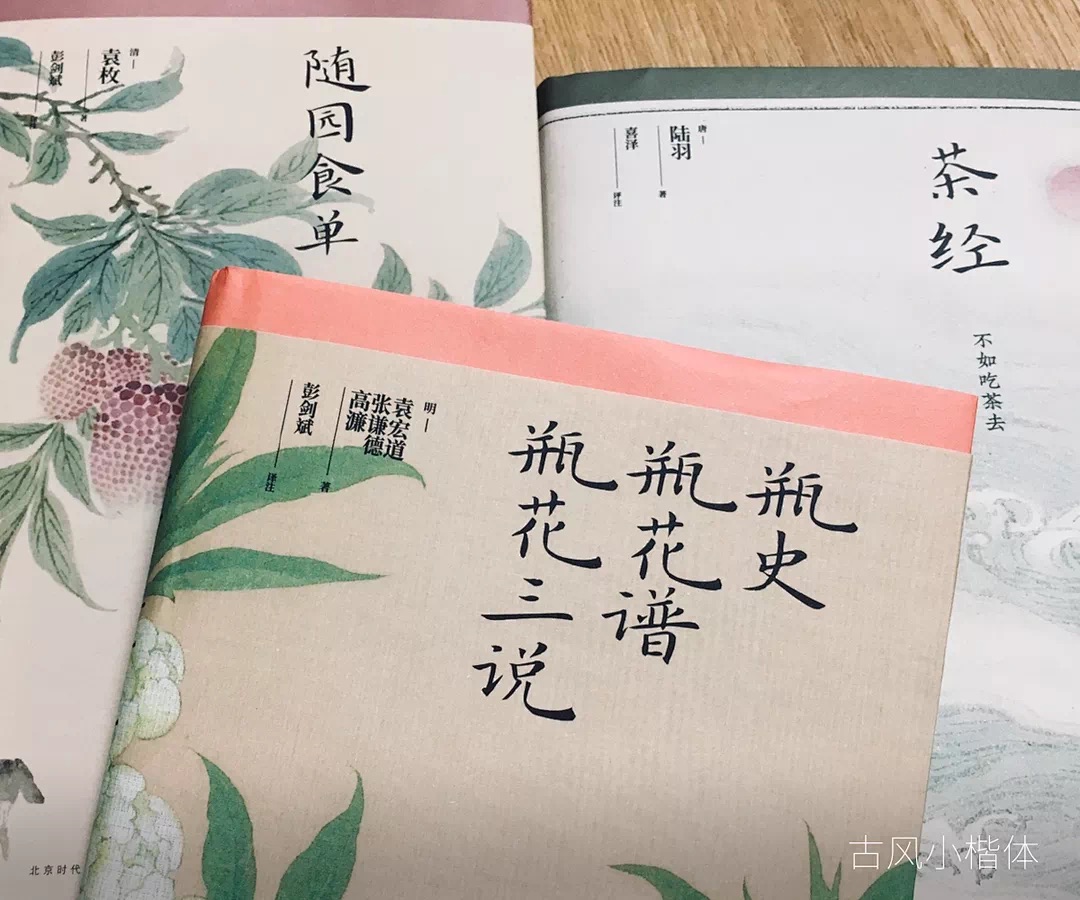 随园食单
清
袁枚
著
彭剑斌
译注
北京时代
茶经
唐
陆羽
著
喜泽
译注
不如吃茶去
瓶史
瓶花谱
瓶花三说
明
袁宏道
张谦德
高濂
著
彭剑斌
译注
古风小楷体